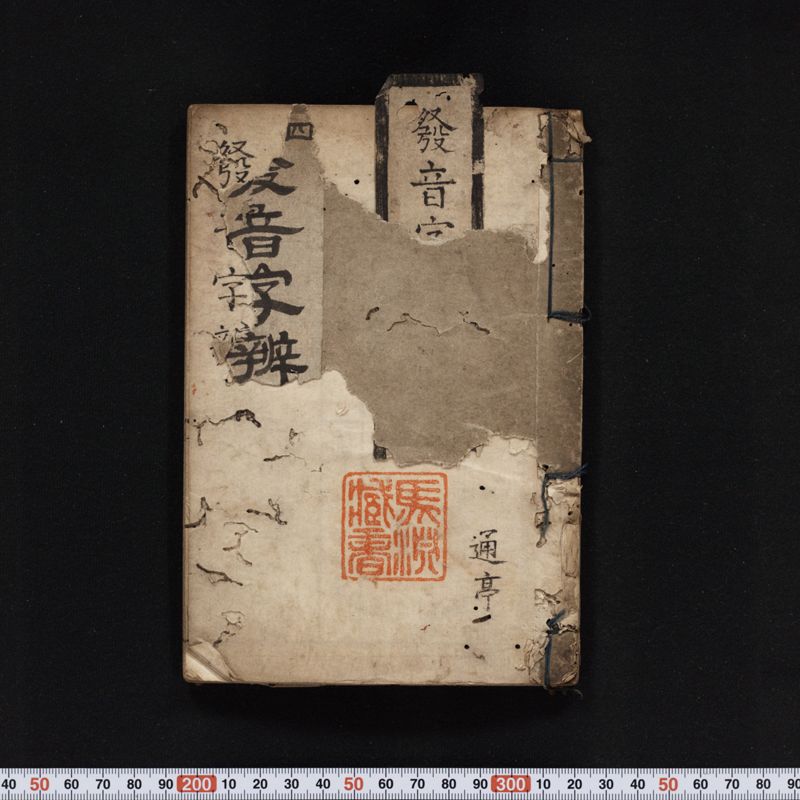 發音
通亭
馬淵
臧書
四
音字辨
發
字
40 50 60 70 80 90 200 10 20 30 40 50 60 70 80 90 300 10 20 30 40 50 60 70 80 90